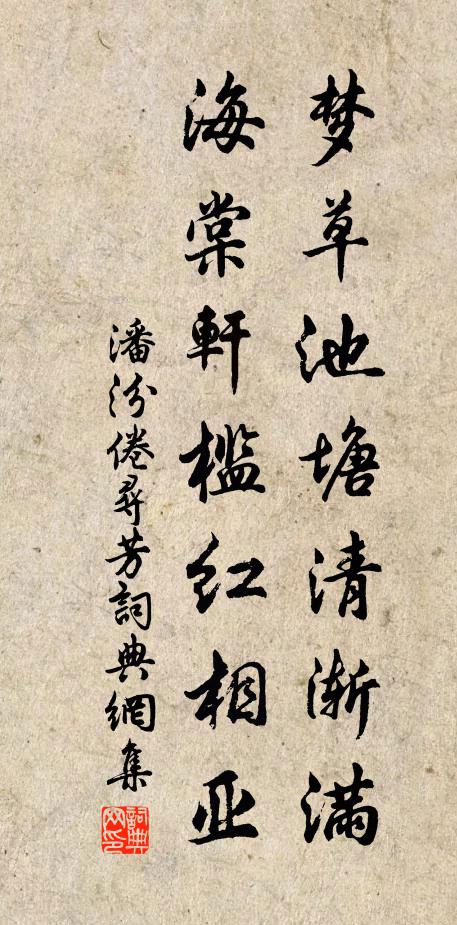 梦草池塘清渐满
海棠軒槛红相亚
潘汾倦尋芳詞典網集
詞典网印